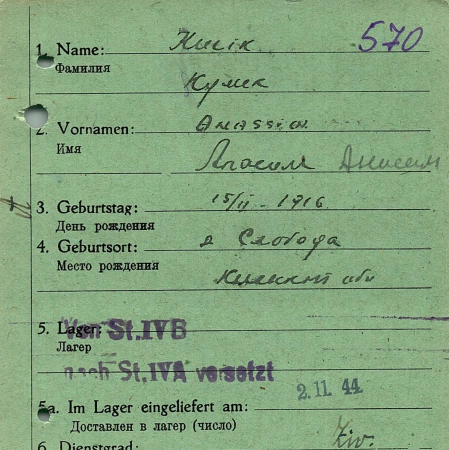 570
1. Name: Kulik
Фамилия Кулик
2. Vornamen: Anassim
Имя Анасим Анисим
3. Geburtstag: 15/II - 1916
День рождения
4. Geburtsort: д Слобода
Место рождения обл
5. Lager: Von St. IV B
Лагер nach St. IVA versetzt
2. 11. 44
5a. Im Lager eingeliefert am:
Доставлен в лагер (число)
6. Dienstgrad: Ziv.